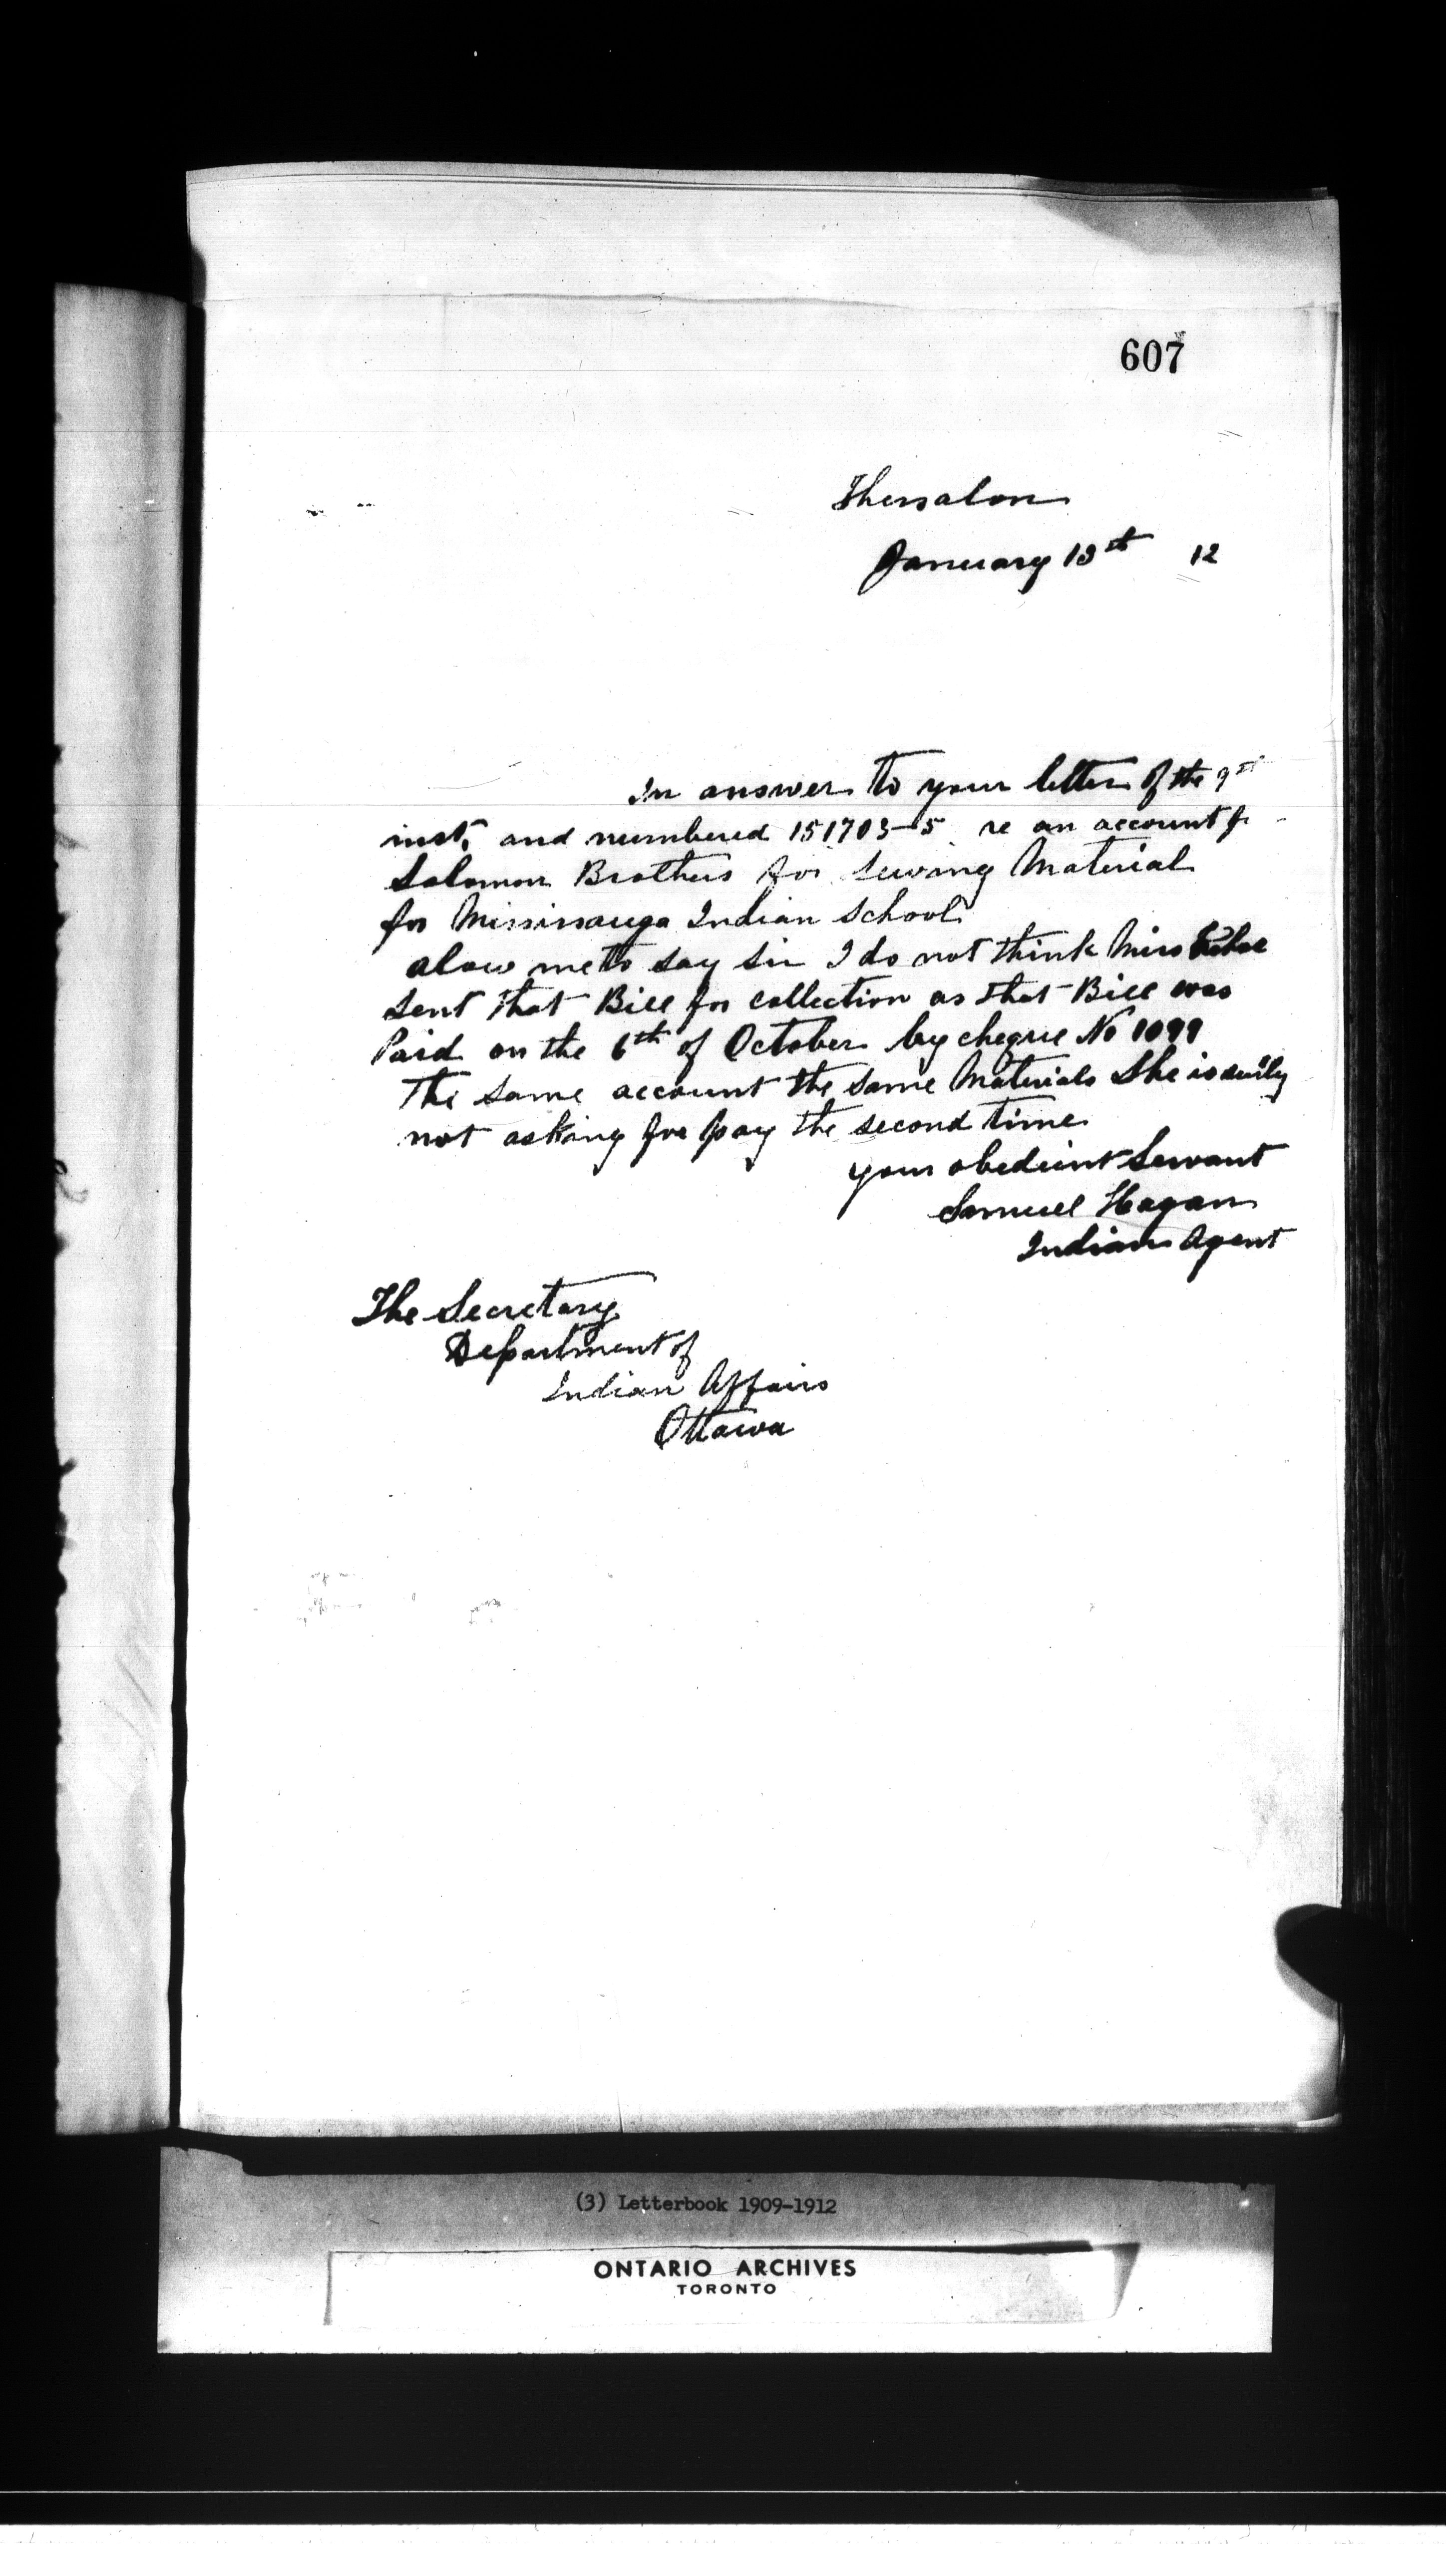 607
Thessalon
January 13th 12
In answer to your letter of the 9th
inst, and numbered 151703-5 re an account
Solomon Brothers for Sewing Material
for Mississauga Indian School
alow me to say Sir I do not think Miss
Sent that Bill for collection as that Bill was
Paid on the 6th of October by cheque No 1099
The same account the same Materials She is
not asking for pay the second time
your obedient Servant
Samuel Hagan
Indian Agent
The Secretary
Department of
Indian Affairs
Ottawa
(3) Letterbook 1909-1912
ONTARIO ARCHIVES
TORONTO